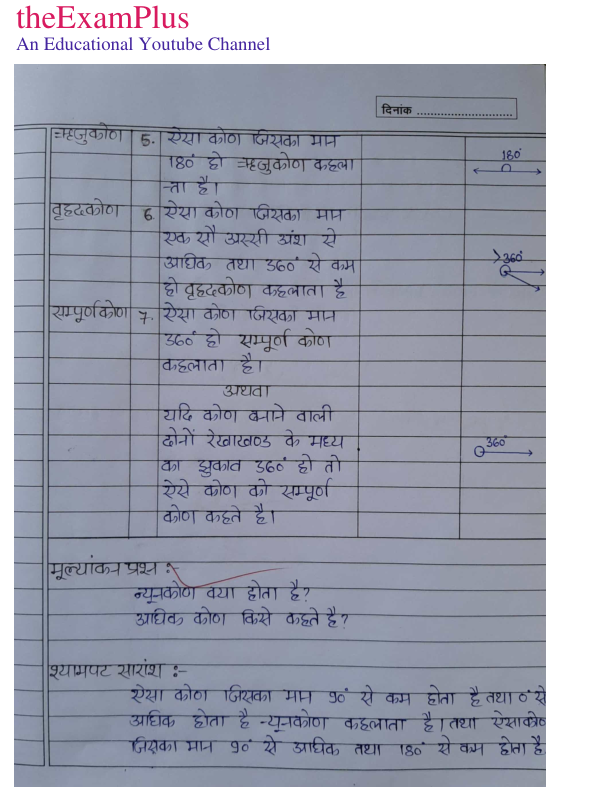 theExamPlus
An Educational Youtube Channel
दिनांक ............................
ऋजुकोण 5. ऐसा कोण जिसका मान
180° हो ऋजुकोण कहला
-ता है।
180°
वृहदकोण 6. ऐसा कोण जिसका मान
एक सौ अस्सी अंश से
अधिक तथा 360° से कम
हो वृहदकोण कहलाता है
>360°
सम्पूर्णकोण 7. ऐसा कोण जिसका मान
360° हो सम्पूर्ण कोण
कहलाता है।
अथवा
यदि कोण बनाने वाली
दोनों रेखाखण्ड के मध्य
का झुकाव 360° हो तो
ऐसे कोण को सम्पूर्ण
कोण कहते है।
360°
मूल्यांकन प्रश्न :-
न्यूनकोण क्या होता है?
अधिक कोण किसे कहते है?
श्यामपट सारांश :-
ऐसा कोण जिसका मान 90° से कम होता है तथा 0° से
अधिक होता है न्यूनकोण कहलाता है। तथा ऐसाकोण
जिसका मान 90° से अधिक तथा 180° से कम होता है